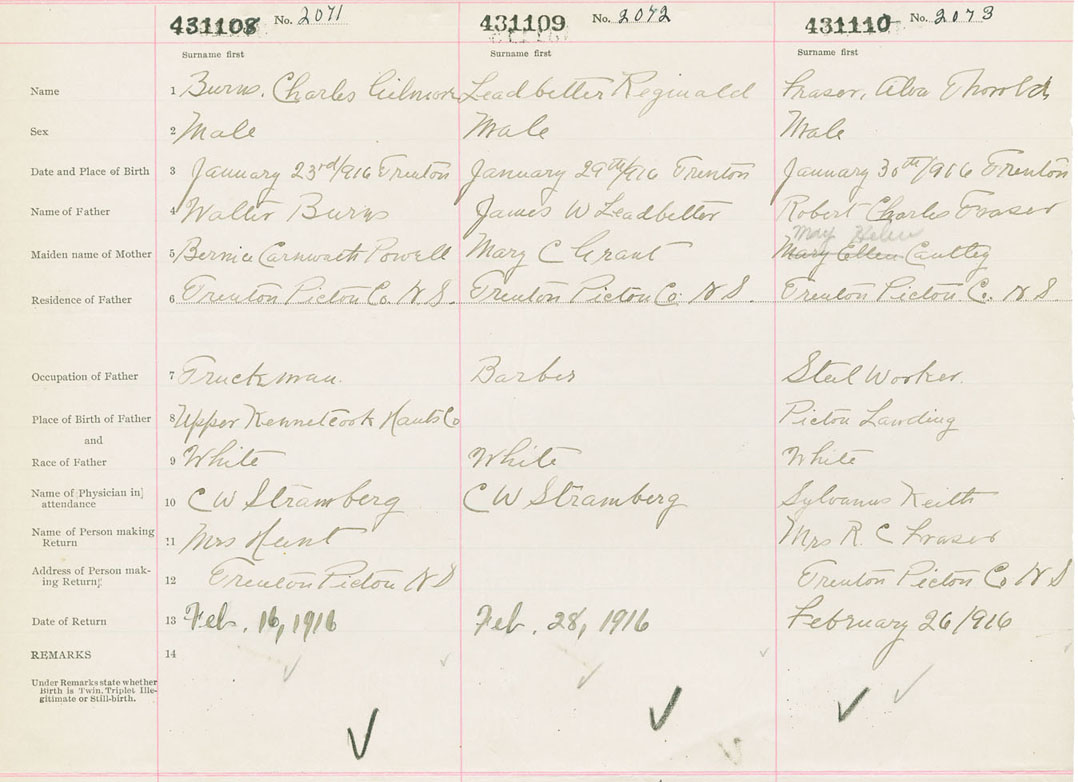 431108 No. 2071 431109 No. 2072 431110 No. 2073
Surname first Surname first Surname first
Name 1 Burns, Charles Gilmore Leadbetter Reginald Fraser, Alva Thorold
Sex 2 Male Male Male
Date and Place of Birth 3 January 23rd/916 Trenton January 29th/916 Trenton January 30th/916 Trenton
Name of Father 4 Walter Burns James W Leadbetter Robert Charles Fraser
May Helen
Maiden name of Mother 5 Bernice Carnwath Powell Mary C Grant Mary Ellen Cantley
Residence of Father 6 Trenton Picton Co. N.S. Trenton Picton Co. N S. Trenton Picton C. N S.
Occupation of Father 7 Truckman. Barber Steel Worker.
Place of Birth of Father 8 Upper Kennetcook Hants Co Picton Landing
and
Race of Father 9 White White White
Name of [Physician in]
attendance 10 C W Stramberg C W Stramberg Sylvanus Keith
Name of Person making
Return 11 Mrs Hunt Mrs R. C Fraser
Address of Person mak-
ing Return 12 Trenton Picton N S Trenton Picton Co N S
Date of Return 13 Feb. 16, 1916 Feb. 28, 1916 February 26/916
REMARKS 14
Under Remarks state whether
Birth is Twin, Triplet Ille-
gitimate or Still-birth.